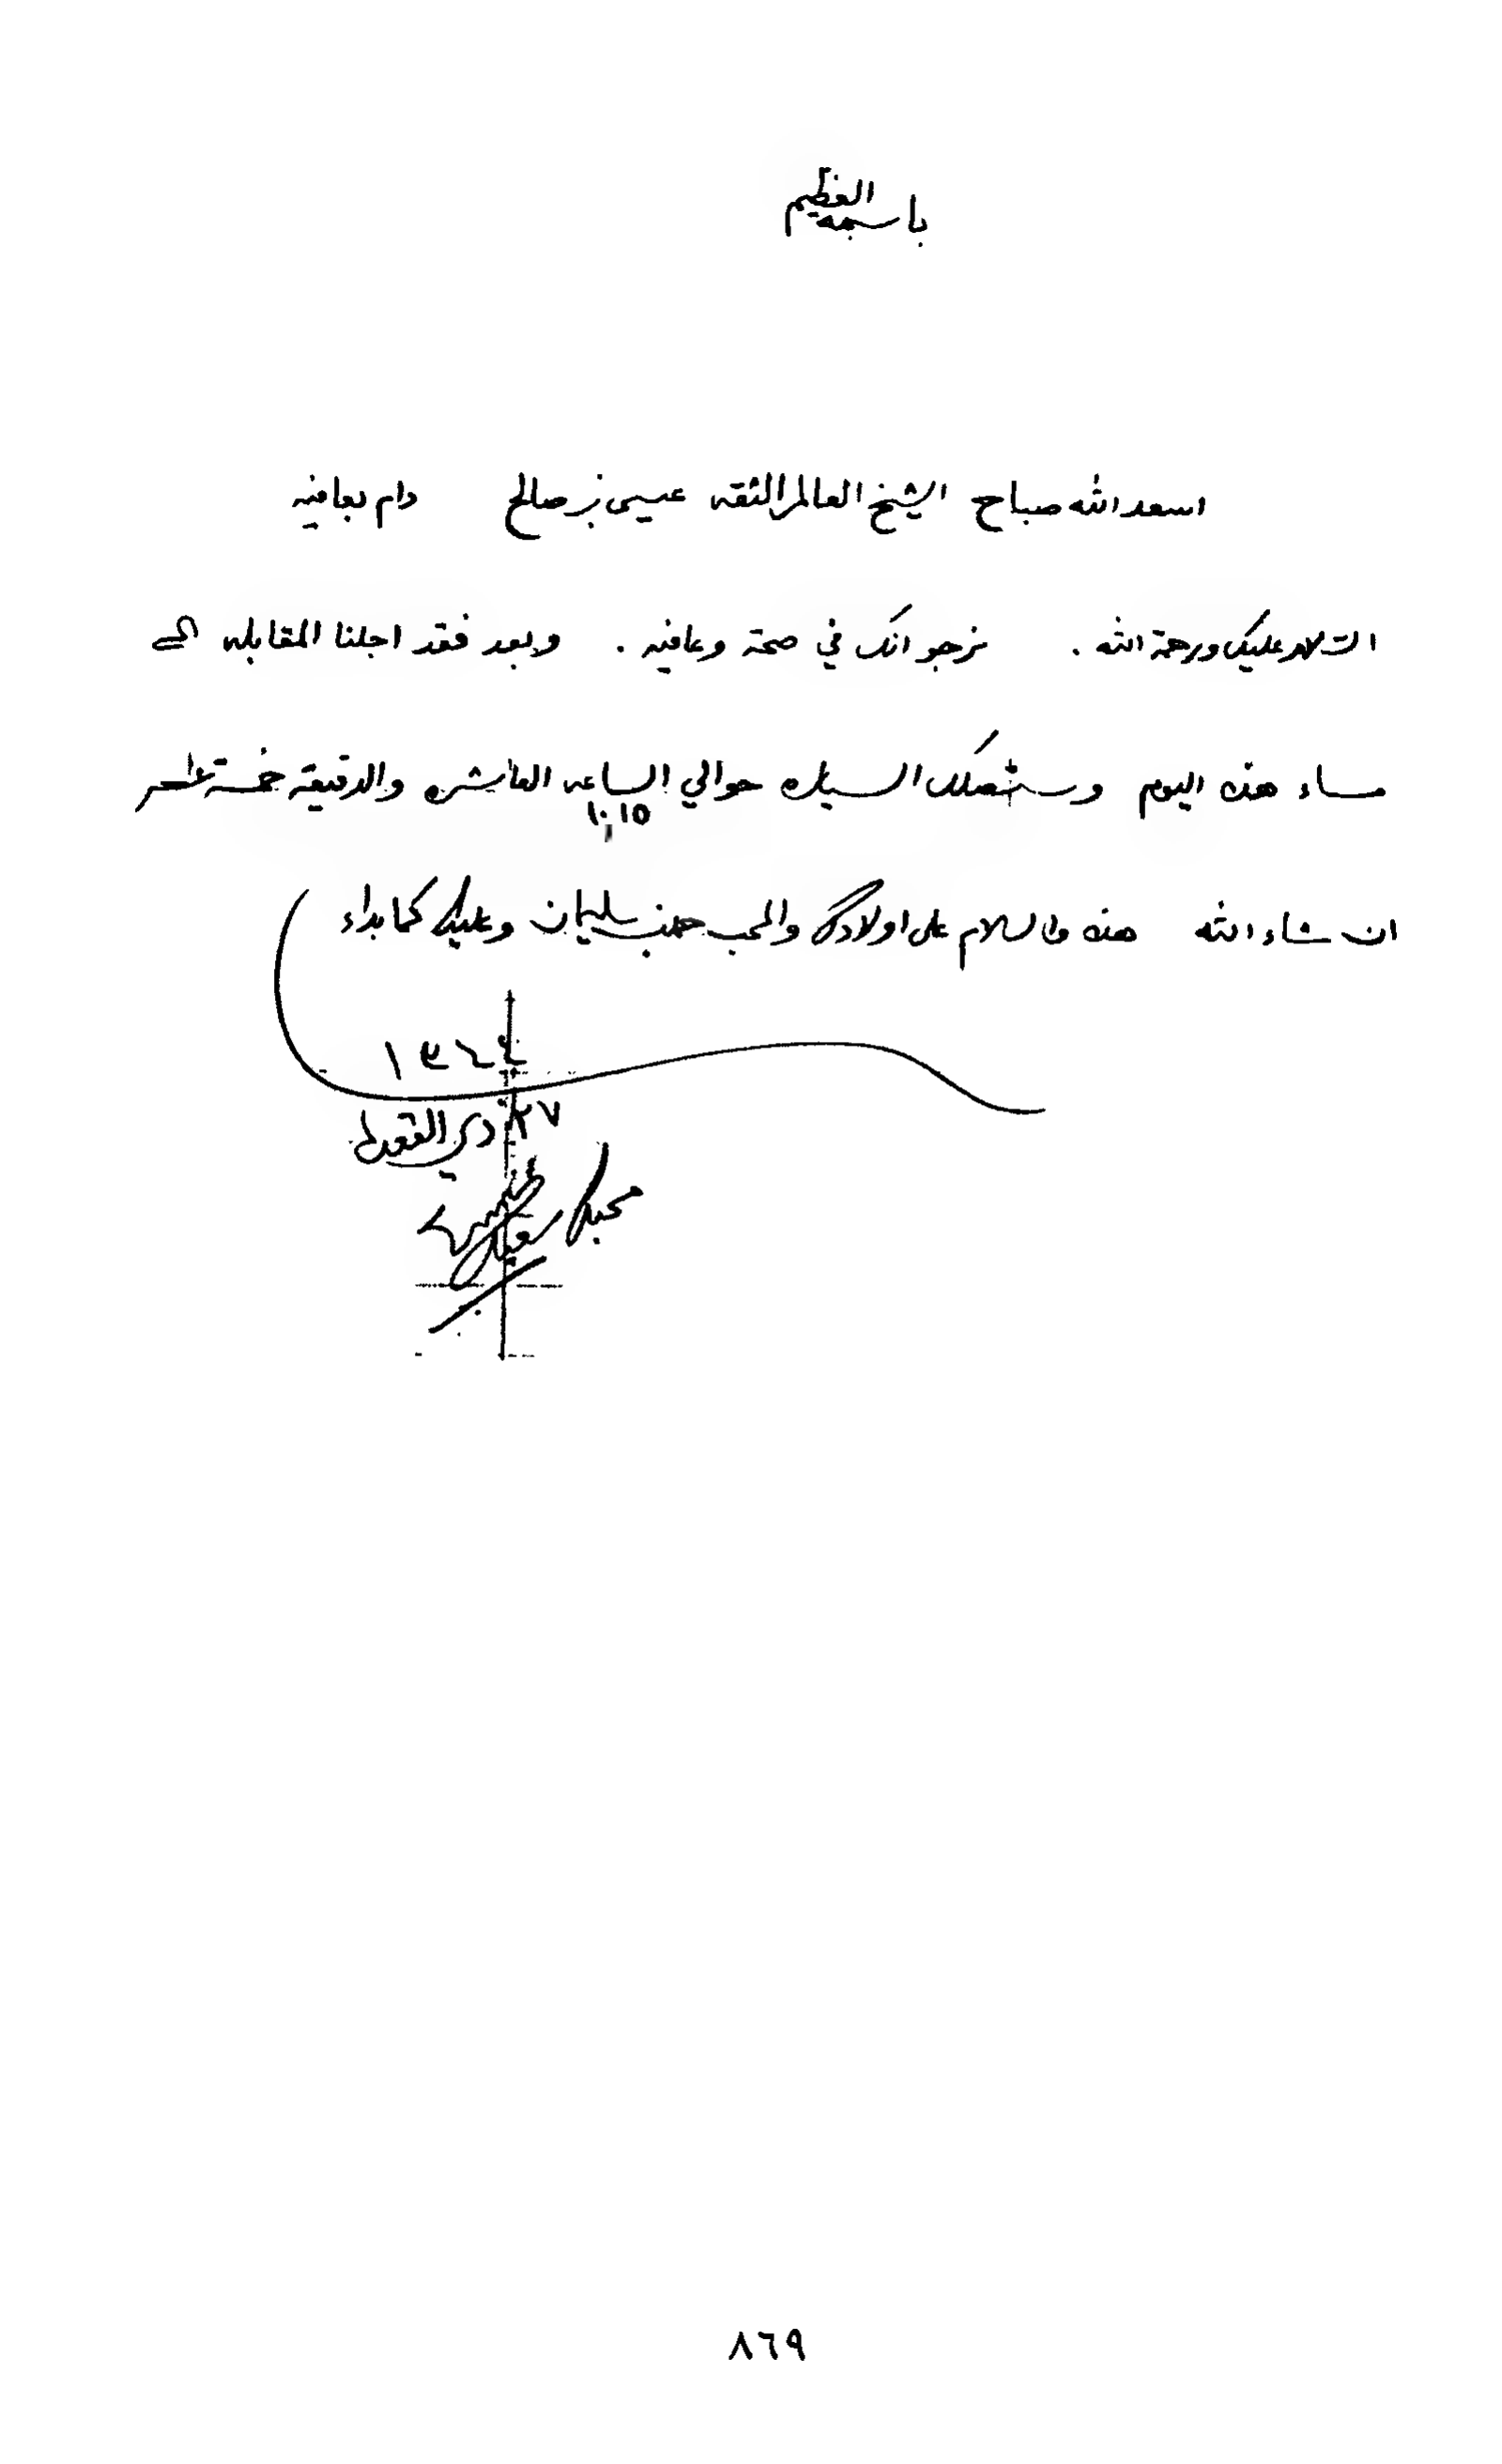 باسمه العظيم
اسعد الله صباح الشيخ العالم الثقه عيسى بن صالح دام بعافيه
السلام عليك ورحمة الله . نرجو انك في صحة وعافيه . وبعد فقد اجلنا المقابله الى
مساء هذه اليوم وستصلك السياره حوالي الساعه العاشره والدقيقة خمسة عشر
١٠،١٥
ان شاء الله هذه والسلام على اولادك والمحب حمد بن سليمان وعليك كما بداء
١٣٦٤
٢٧ ذي القعده
محبك سعيد بن
٨٦٩